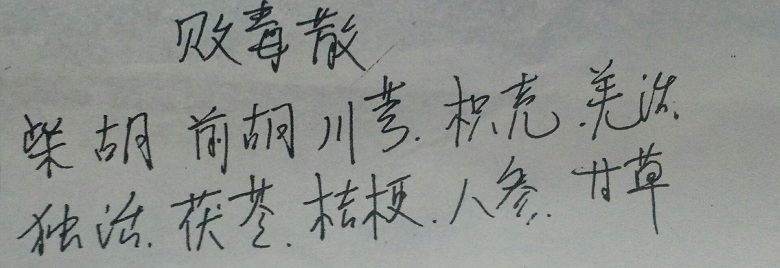 败毒散
柴胡 前胡 川芎. 枳壳. 羌活.
独活. 茯苓. 桔梗. 人参. 甘草